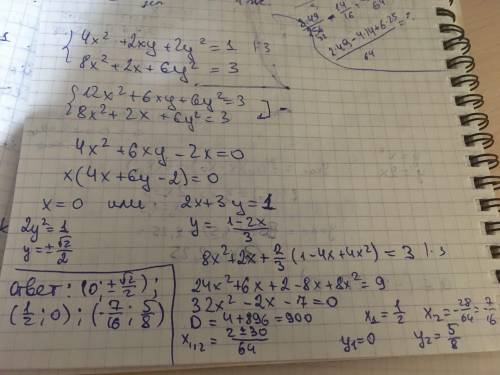 { 4x² + 2xy + 2y² = 1 |·3
{ 8x² + 2x + 6y² = 3
{ 12x² + 6xy + 6y² = 3
{ 8x² + 2x + 6y² = 3 ] -
4x² + 6xy - 2x = 0
x(4x + 6y - 2) = 0
x = 0 или 2x + 3y = 1
2y² = 1
y = ± √2/2
y = (1 - 2x)/3
8x² + 2x + 2/3 (1 - 4x + 4x²) = 3 |·3
24x² + 6x + 2 - 8x + 8x² = 9
32x² - 2x - 7 = 0
D = 4 + 896 = 900
x₁,₂ = (2 ± 30)/64
x₁ = 1/2 x₂ = -28/64 = 7/16
y₁ = 0 y₂ = 5/8
Ответ: (0; ± √2/2);
(1/2; 0); (-7/16; 5/8)